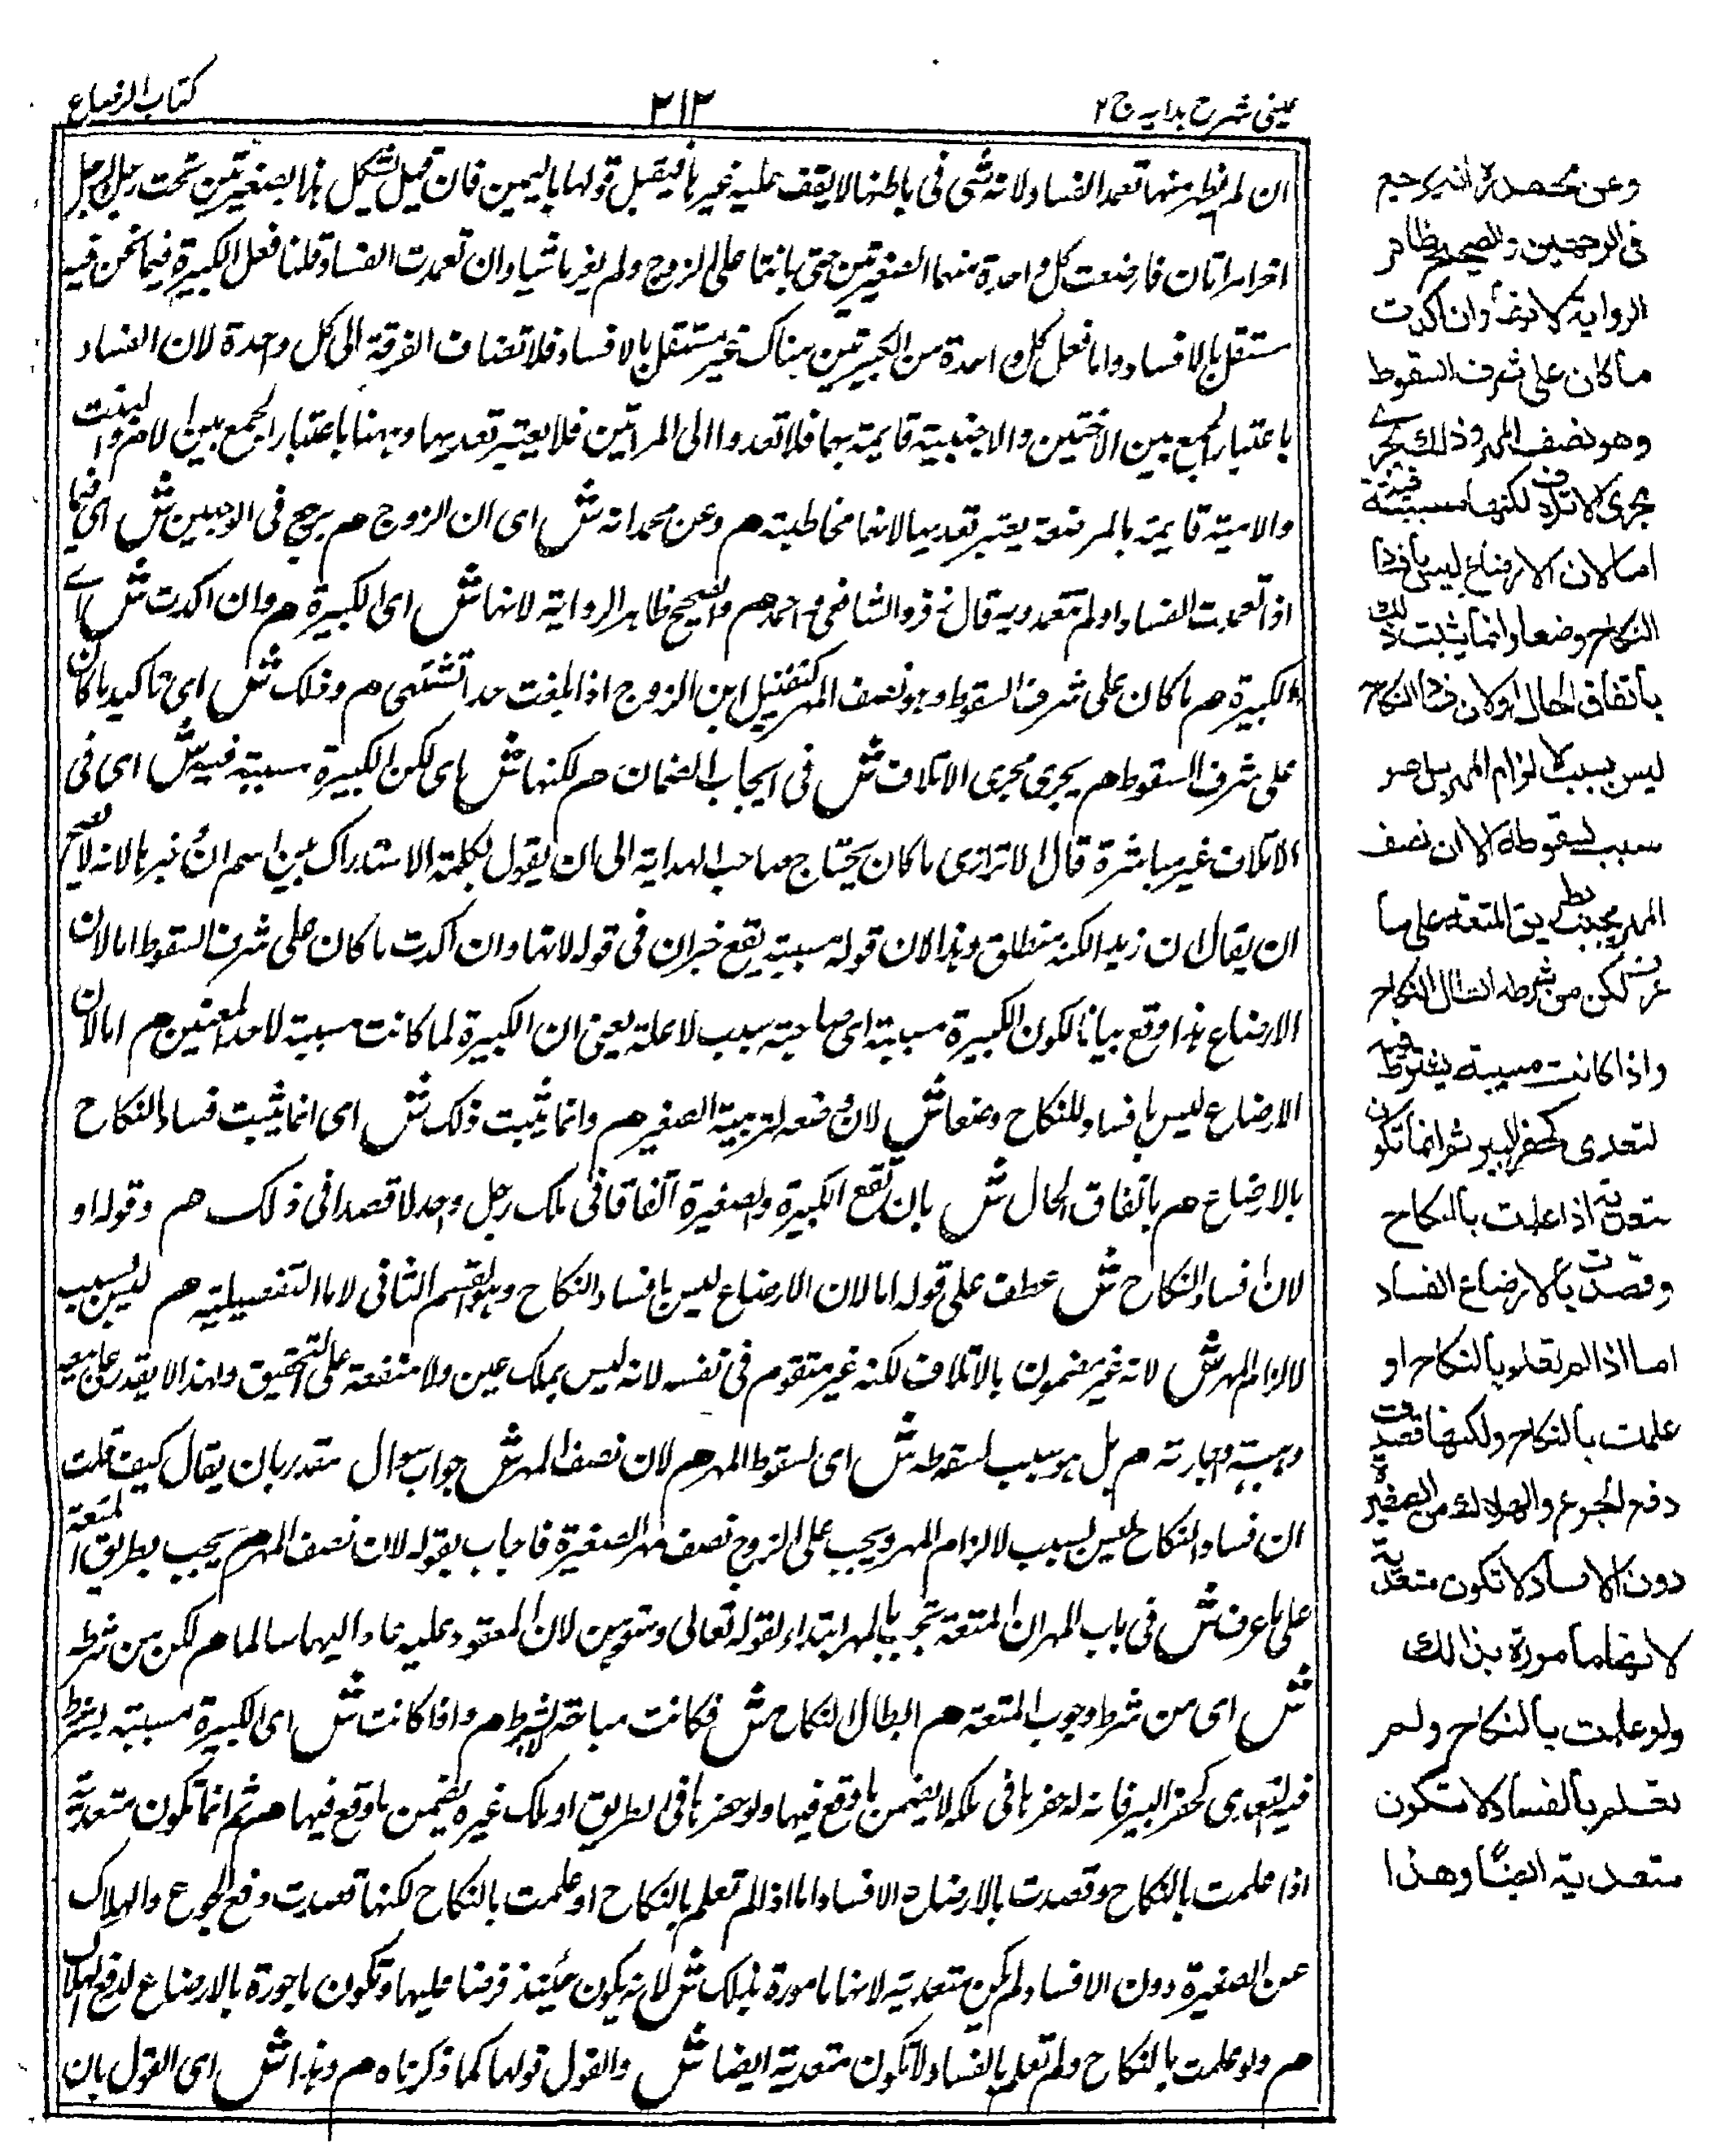 عینی شرح ہدایہ ج ۲
۲۱۲
کتاب الرضاع
ان لم یظہر منہا تعمد الفساد لانہ شی فی باطنہا لا یقف علیہ غیرہا فیقبل قولہا بالیمین فان قیل یشکل ہذا بصغیرتین تحت رجل
فارضعت کل واحدۃ منہما الصغیرتین حتی بانتا علی الزوج ولم یغرما شیا وان تعمدت الفساد قلنا فعل الکبیرۃ فیما نحن فیہ
مستقل بالافساد واما فعل کل واحدۃ من الکبیرتین ہناک غیر مستقل بالافساد فلا تضاف الفرقۃ الی کل واحدۃ لان الفساد
باعتبار الجمع بین الاختین والاختیۃ قایمۃ بہما فلا تعدوا الی المراتین فلا یعتبر تعدیہا وہہنا باعتبار الجمع بین الام والبنت
والامیۃ قایمۃ بالمرضعۃ یعتبر تعدیہا لانہا مخاطبۃ ھم وعن محمد انہ ش ای ان الزوج ھم یرجع فی الوجہین ش ای فیما
اذا تعمدت الفساد او لم تتعمد وبہ قال زفر والشافعی واحمد ھم والصحیح ظاہر الروایۃ لانہا ش ای الکبیرۃ ھم وان اکدت ش اے
الکبیرۃ ھم ما کان علی شرف السقوط وہو نصف المہر کتقبیل ابن الزوج اذا بلغت حدا تشتہی ھم وذلک ش ای تاکید ما کان
علی شرف السقوط ھم یجری مجری الاتلاف ش فی ایجاب الضمان ھم لکنہا ش ای لکن الکبیرۃ مسببۃ فیہ ش ای فی
الاتلاف غیر مباشرۃ قال الاترازی ما کان یحتاج صاحب الہدایۃ الی ان یقول بکلمۃ الاستدراک بین اسم ان وخبرہا لانہ لا یصح
ان یقال ان زیدا لکنہ منطلق وہذا لان قولہ مسببۃ یقع خبر ان فی قولہ لانہا وان اکدت ما کان علی شرف السقوط اما لان
الارضاع ہذا وقع بیانا لکون الکبیرۃ مسببۃ ای صاحبۃ سبب لا علۃ یعنی ان الکبیرۃ لما کانت مسببۃ لاحد المعنیین ھم اما لان
الارضاع لیس بافساد للنکاح وضعا ش لان وضعہ لتربیۃ الصغیر ھم وانما یثبت ذلک ش ای انما یثبت فساد النکاح
بالارضاع ھم باتفاق الحال ش بان تقع الکبیرۃ والصغیرۃ اتفاقا فی ملک رجل واحد لا قصدا فی ذلک ھم وقولہ او
لان فساد النکاح ش عطف علی قولہ اما لان الارضاع لیس بافساد النکاح وہو القسم الثانی لاما التفصیلیۃ ھم لیس بسبب
لالزام المہر ش لانہ غیر مضمون بالاتلاف لکنہ غیر متقوم فی نفسہ لانہ لیس بملک عین ولا منفعۃ علی التحقیق ولہذا لا یقدر علی بیعہ
وہبتہ واجارتہ ھم بل ہو سبب لسقوطہ ش ای لسقوط المہر ھم لان نصف المہر ش جواب سوال مقدر بان یقال کیف قلت
ان فساد النکاح لیس بسبب لالزام المہر ویجب علی الزوج نصف مہر الصغیرۃ فاجاب بقولہ لان نصف المہر ھم یجب بطریق المتعۃ
علی ما عرف ش فی باب المہر ان المتعۃ تجب بالمہر ابتداء لقولہ تعالی ومتعوہن لان المعقود علیہ عاد الیہا سالما ھم لکن من شرطہ
ش ای من شرط وجوب المتعۃ ھم ابطال النکاح ش فکانت مباشرۃ الشرط ھم واذا کانت ش ای الکبیرۃ مسببۃ یشترط
فیہ التعدی کحفر البیر فانہ لو حفرہا فی ملکہ لا یضمن ما وقع فیہا ولو حفرہا فی الطریق او ملک غیرہ یضمن ما وقع فیہا ھم ثم انما تکون متعدیۃ
اذا علمت بالنکاح وقصدت بالارضاع الافساد اما اذا لم تعلم بالنکاح او علمت بالنکاح لکنہا قصدت دفع الجوع والہلاک
عن الصغیرۃ دون الافساد لم تکن متعدیۃ لانہا مامورۃ بذلک ش لانہ یکون حینئذ فرضا علیہا وتکون ماجورۃ بالارضاع لدفع الہلاک
ھم ولو علمت بالنکاح ولم تعلم بالفساد لا تکون متعدیۃ ایضا ش والقول قولہا کما ذکرناہ ھم وہذا ش ای القول بان
وعن محمد رح انہ یرجع
فی الوجھین والصحیح ظاہر
الروایۃ لانھا وان اکدت
ما کان علی شرف السقوط
وھو نصف المہر وذلک یجرے
مجری الاتلاف لکنھا مسببۃ فیہ
اما لان الارضاع لیس بافساد
النکاح وضعا وانما یثبت ذلک
باتفاق الحال او لان فساد النکاح
لیس بسبب لالزام المہر بل ھو
سبب لسقوطہ الا ان نصف
المہر یجب بطریق المتعۃ علی ما
عرف لکن من شرطہ ابطال النکاح
واذا کانت مسببۃ یشترط فیہ
التعدی کحفر البیر ثم انما تکون
متعدیۃ اذا علمت بالنکاح
وقصدت بالارضاع الفساد
اما اذا لم تعلم بالنکاح او
علمت بالنکاح ولکنھا قصدت
دفع الجوع والھلاک من الصغیرۃ
دون الافساد لا تکون متعدیۃ
لانھا مامورۃ بذالک
ولو علمت بالنکاح ولم
تعلم بالفساد لا تکون
متعدیۃ ایضًا وھذا